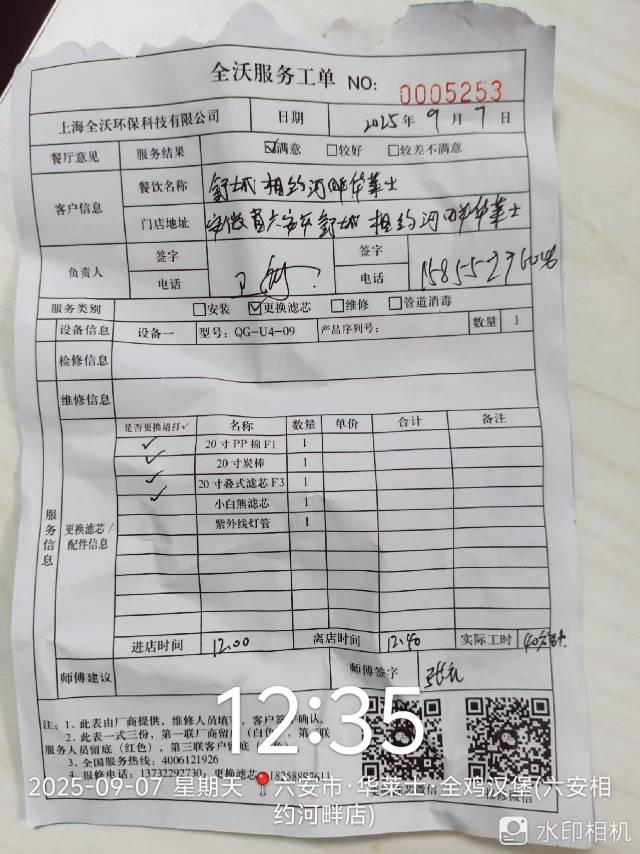 全沃服务工单 NO: 0005253
上海全沃环保科技有限公司 日期 2025年 9月 7日
餐厅意见 服务结果 ☑满意 □较好 □较差不满意
客户信息 餐饮名称 舒城相约河畔华莱士
门店地址 安徽省六安市舒城相约河畔华莱士
负责人 签字 签字
电话 电话
服务类别 □安装 ☑更换滤芯 □维修 □管道消毒
设备信息 设备一 型号: QG-U4-09 产品序列号: 数量 1
检修信息
维修信息
服务信息 更换滤芯/配件信息
是否更换请打✓ 名称 数量 单价 合计 备注
✓ 20寸PP棉F1 1
✓ 20寸炭棒 1
✓ 20寸叠式滤芯F3 1
✓ 小白熊滤芯 1
紫外线灯管 1
进店时间 12:00 离店时间 12:40 实际工时 40分钟
师傅建议 师傅签字 张
注: 1. 此表由厂商提供, 维修人员填写, 客户签字确认。
2. 此表一式三份, 第一联厂商留底(白色), 第二联
服务人员留底(红色), 第三联客户留底
3. 全国服务热线: 4006121926
4. 报修电话: 13732292730; 更换滤芯
12:35
2025-09-07 星期天 六安市·华莱士·全鸡汉堡(六安相
约河畔店)
水印相机